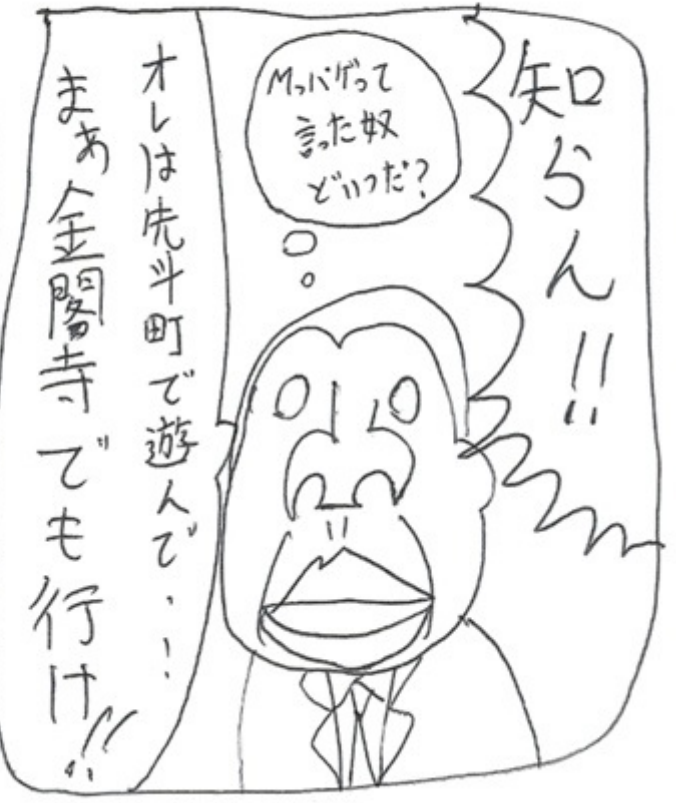 知らん!!
Mっパゲって
言った奴
どいつだ?
オレは先斗町で遊んで・・!
まぁ金閣寺でも行け!!